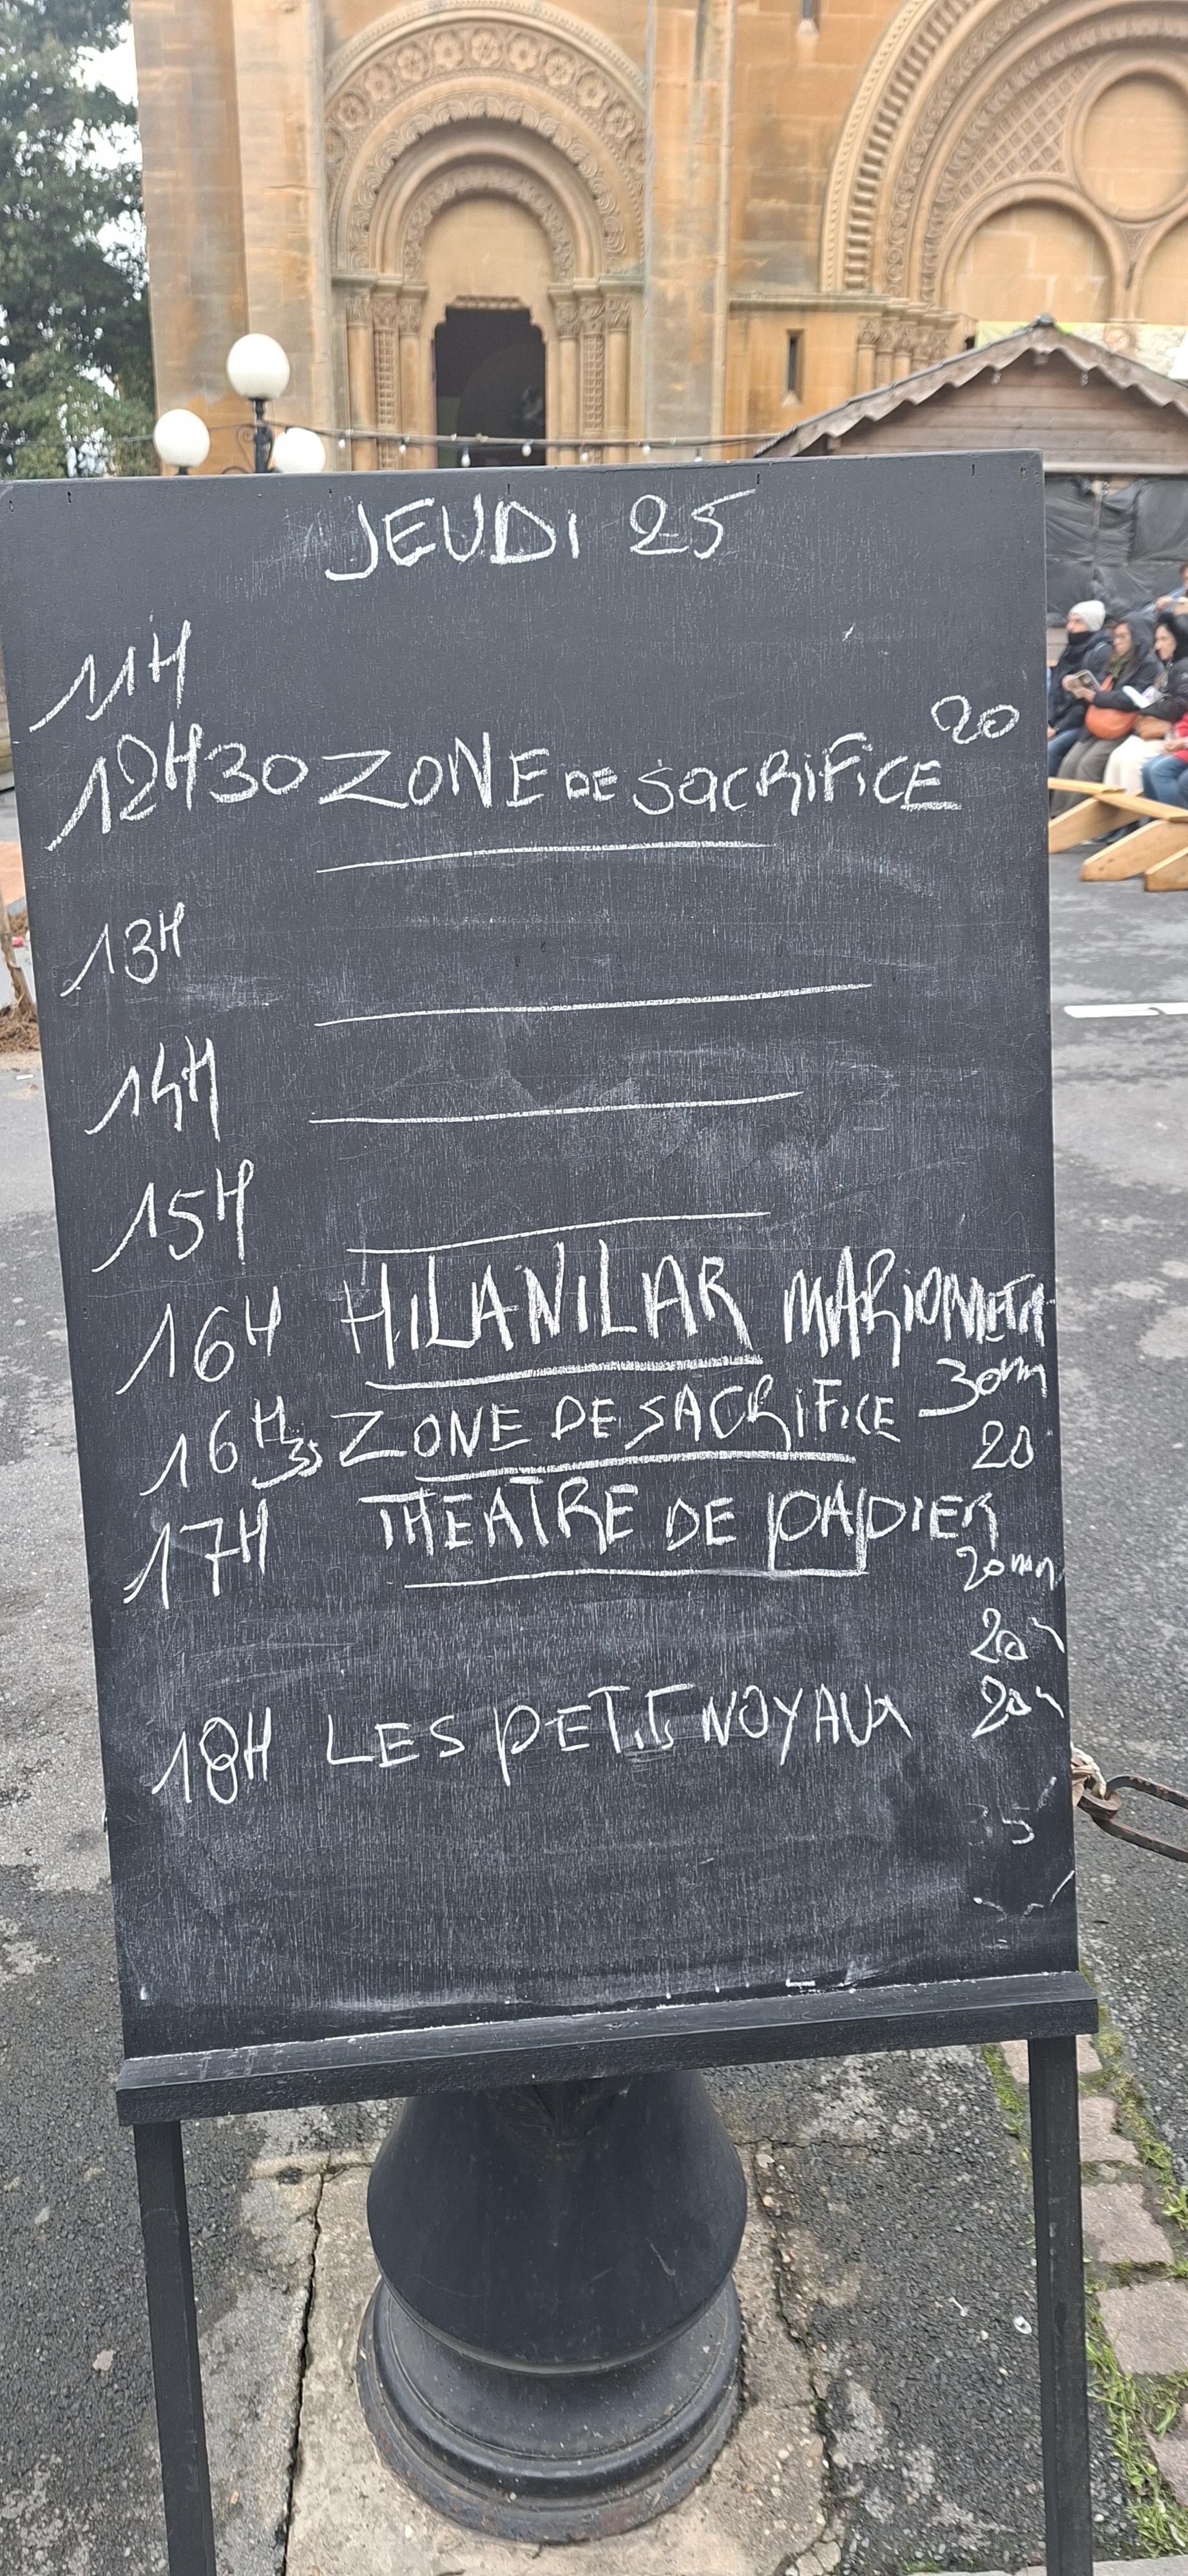 JEUDI 25
11H
12H30 ZONE DE SACRIFICE 20
13H
14H
15H
16H HILANILAR MARIONETA
30mn
16H35 ZONE DE SACRIFICE 20
17H THEATRE DE PAPIER
20mn
20
20
18H LES PETITS NOYAUX
35